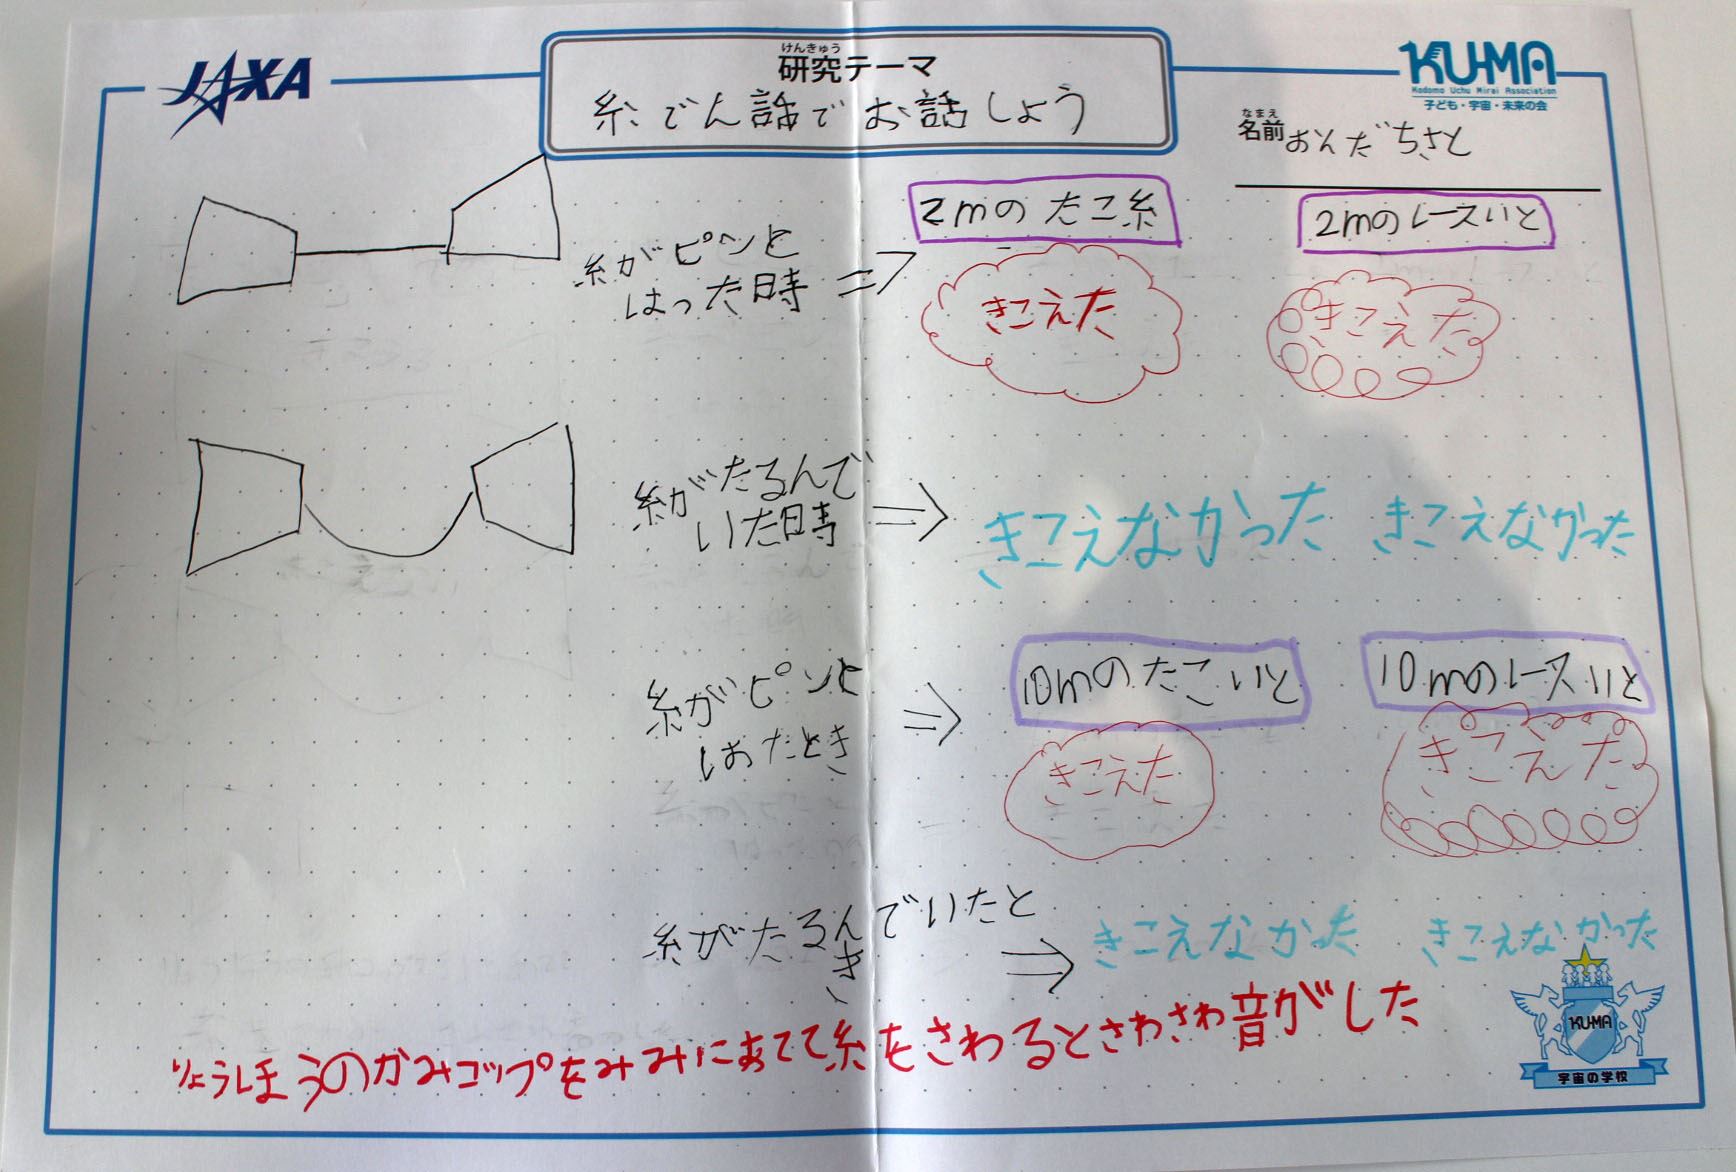 JAXA
けんきゅう
研究テーマ
糸でん話でお話しょう
KU-MA
Kodomo Uchu Mirai Association
子ども・宇宙・未来の会
なまえ
名前 おんだちさと
糸がピンと
はった時
2mのたこ糸
2mのレースいと
きこえた
きこえた
糸がたるんで
いた時
きこえなかった
きこえなかった
糸がピンと
はったとき
10mのたこいと
10mのレースいと
きこえた
きこえた
糸がたるんでいたと
き
きこえなかった
きこえなかった
りょうほうのかみコップをみみにあてて糸をさわるとさわさわ音がした
KU-MA
宇宙の学校